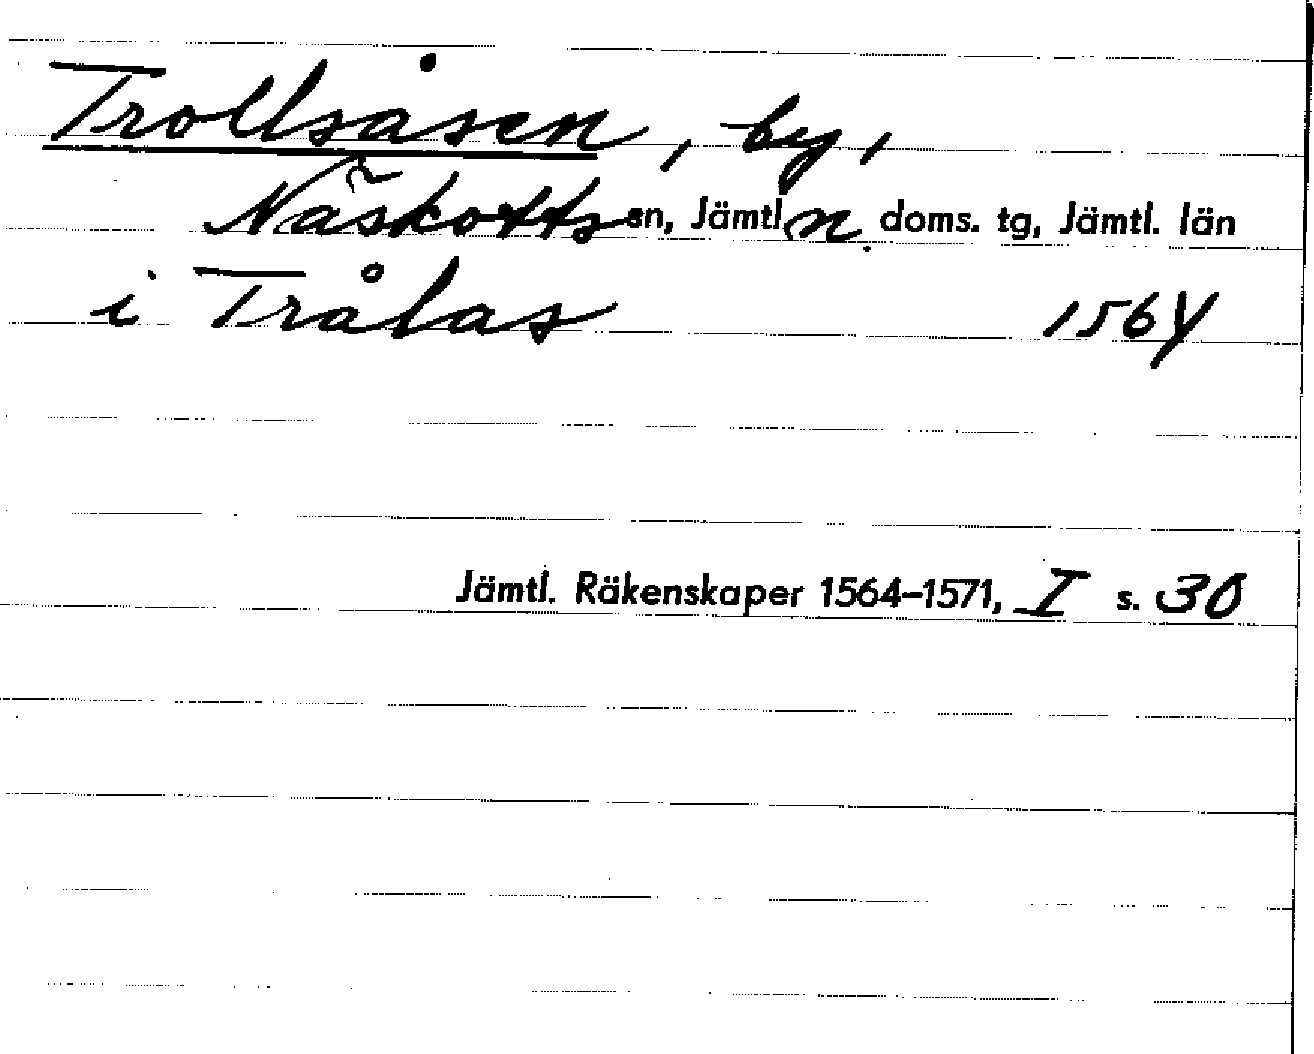 Trollsåsen, by,
Näskotts sn, Jämtl. n doms. tg, Jämtl. län
i Trålas 1564
Jämtl. Räkenskaper 1564-1571, I s. 30